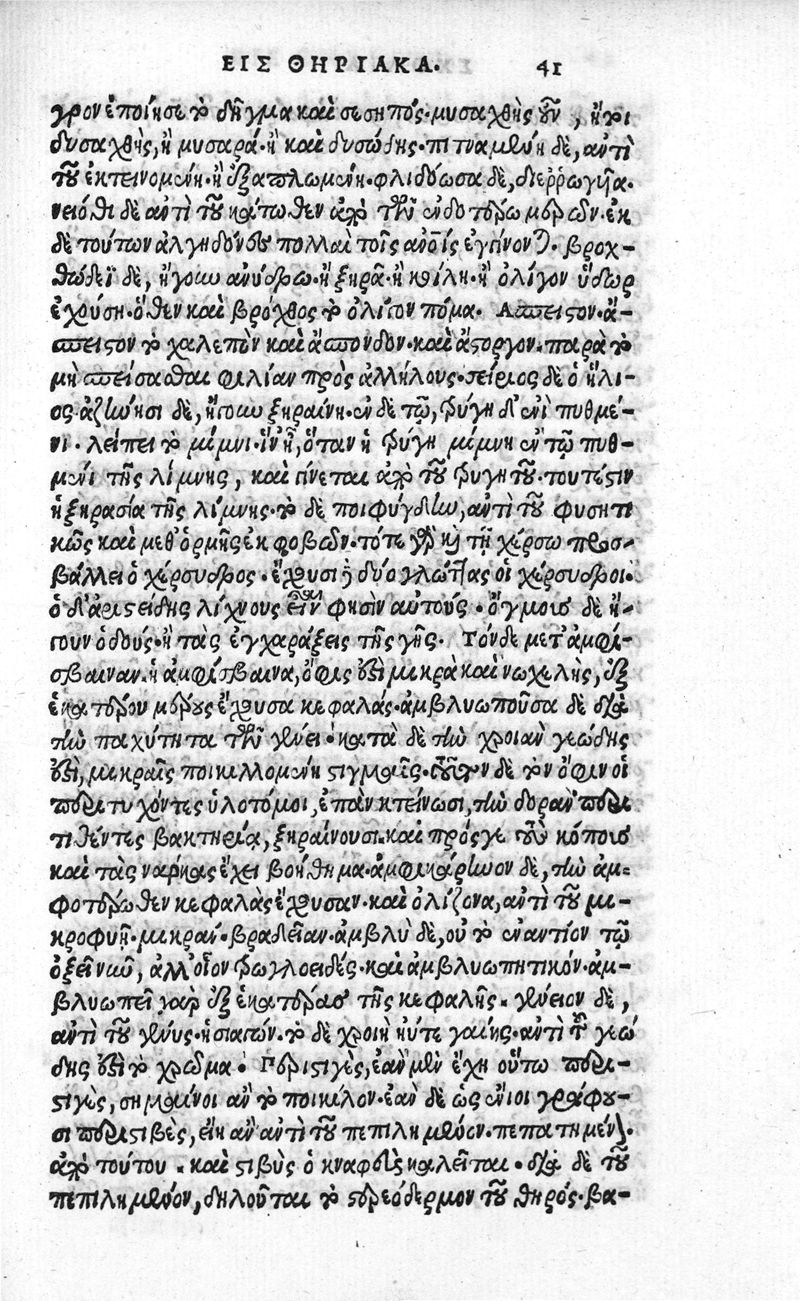 ΕΙΣ ΘΗΡΙΑΚΑ. 41
γρον ἐποίησε τὸ δῆγμα καὶ σεσηπός· μυσαχθὴς οὖν, ἤτοι
δυσαχθὴς, ἢ μυσαρά· ἢ καὶ δυσώδης· πιτναμένη δὲ, ἀντὶ
τοῦ ἐκτεινομένη· ἢ ἐξαπλωμένη· φλιδόωσα δὲ, διερρωγῆα·
νειόθι δὲ ἀντὶ τοῦ κάτωθεν ἀπὸ τῶν ἐνδοτέρω μερῶν· ἐκ
δὲ τούτων ἀλγηδόνες πολλαὶ τοῖς αὐτοῖς ἐγίνοντο. βροχ-
θώδεϊ δὲ, ἤγουν ἀνύδρω· ἢ ξηρᾶ· ἢ κοίλη· ἢ ὀλίγον ὕδωρ
ἐχούση· ὅθεν καὶ βρόχθος τὸ ὀλίγον πόμα. Ἄσπειστον· ἄ-
σπειστον τὸ χαλεπὸν καὶ ἄσπονδον· καὶ ἄστοργον· παρὰ τὸ
μὴ σπείσασθαι φιλίαν πρὸς ἀλλήλους· σείριος δὲ ὁ ἥλι-
ος· ἀζήνησι δὲ, ἤγουν ξηραίνη· ἐν δὲ τῶ, τρύγη δ' ἐνὶ πυθμέ-
νι· λείπει τὸ μίμνη· ἵν' ᾖ, ὅταν ἡ τρύγη μίμνη ἐν τῶ πυθ-
μένι τῆς λίμνης, καὶ γίνεται ἀπὸ τοῦ τρυγη τοῦ· τουτέστιν
ἡ ξηρασία τῆς λίμνης· τὸ δὲ ποιφύγδην, ἀντὶ τοῦ φυσητι
κῶς καὶ μεθ' ὁρμῆς ἐκφοβῶν· τότε γὰρ καὶ τῆ χέρσω προσ-
βάλλει ὁ χέρσυδρος· ἔχουσι δὲ δύο γλώττας οἱ χέρσυδροι·
ὁ δ' ἀριστείδης λίχνους εἶναι φησὶν αὐτούς· ὄγμοις δὲ ἤ-
γουν ὁδοὺς· ἢ τὰς ἐγχαράξεις τῆς γῆς. Τόνδε μετ' ἀμφί-
σβαιναν. ἡ ἀμφίσβαινα, ὄφις ἐστὶ μικρὰ καὶ νωχελὴς, ἐξ
ἑκατέρου μέρους ἔχουσα κεφαλάς· ἀμβλυωποῦσα δὲ διὰ
τὴν παχύτητα τῶν γενύει· κατὰ δὲ τὴν χροιὰν γεώδης
ἐστὶ, μικραῖς ποικιλλομένη στιγμαῖς· τοῦτον δὲ τὸν ὄφιν οἱ
περιτυχόντες ὑλοτόμοι, ἐπὰν κτείνωσι, τὴν δορὰν περι
τιθέντες βακτηρία, ξηραίνουσι· καὶ πρός γε τοὺς κόπους
καὶ τὰς νάρκας ἔχει βοήθημα· ἀμφικάρηνον δὲ, τὴν ἀμ-
φοτέρωθεν κεφαλὰς ἔχουσαν· καὶ ὀλίζονα, ἀντὶ τοῦ μι-
κροφυῆ· μικράν· βραδεῖαν· ἀμβλὺ δὲ, οὐ τὸ ἐναντίον τῶ
ὀξεῖ νῦν, ἀλλ' οἷον τρωγλοειδές· καὶ ἀμβλυωπητικόν· ἀμ-
βλυωπεῖ γὰρ ἐξ ἑκατέρας τῆς κεφαλῆς. γένειον δὲ,
ἀντὶ τοῦ γένυς· ἡ σιαγών. τὸ δὲ χροιὴ ἠύτε γαίης· ἀντὶ τοῦ γεώ
δης ἐστὶ τὸ χρῶμα. Περιστιγὲς, ἐὰν μὲν ἔχη οὕτω περι-
στιγὲς, σημαίνοι ἂν τὸ ποικίλον· ἐὰν δὲ ὡς ἔνιοι γράφου-
σι περιστιβὲς, εἴη ἂν ἀντὶ τοῦ πεπιλημένον· πεπατημένον·
ἀπὸ τούτου. καὶ στιβὺς ὁ κναφεὺς καλεῖται. διὰ δὲ τοῦ
πεπιλημένον, δηλοῦται τὸ στρεόδερμον τοῦ θηρός. βα-